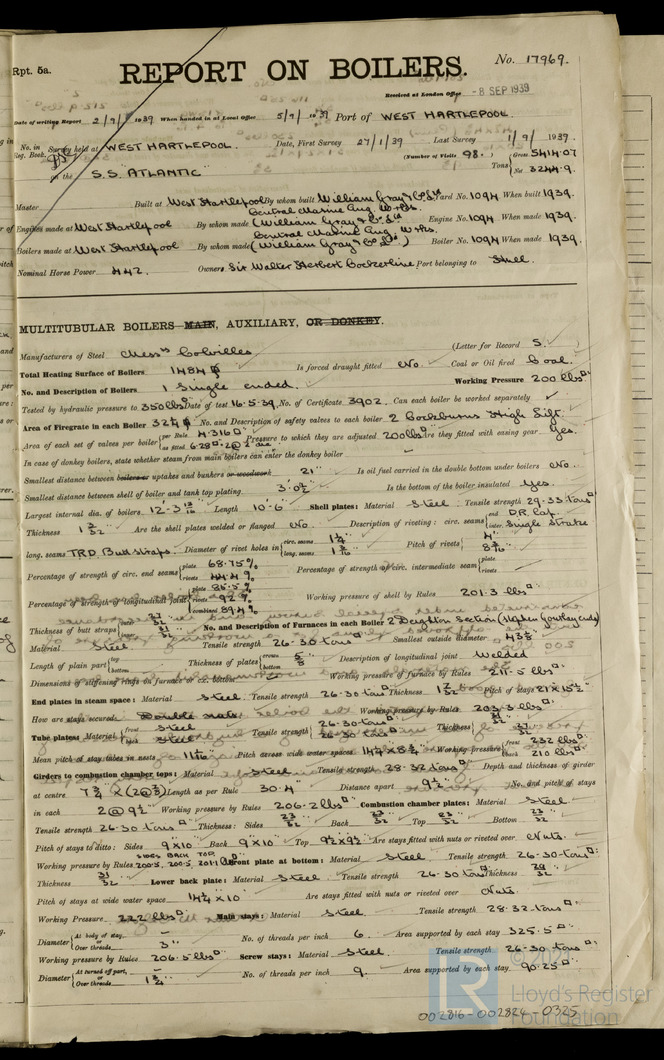 Rpt. 5a.
REPORT ON BOILERS.
No. 17969.
Received at London Office - 8 SEP 1939
Date of writing Report 2/9/1939 When handed in at Local Office 5/9/1939 Port of WEST HARTLEPOOL.
No. in Reg. Book. Survey held at WEST HARTLEPOOL. Date, First Survey 27/1/39 Last Survey 1/9/1939.
(Number of Visits 98.)
on the S.S. "ATLANTIC" Tons Gross 5414.07 Net 3244.9.
Master Built at West Hartlepool By whom built William Gray & Co Ltd Yard No. 1094 When built 1939.
Engines made at West Hartlepool By whom made Central Marine Eng. Works. (William Gray & Co Ltd) Engine No. 1094 When made 1939.
Boilers made at West Hartlepool By whom made Central Marine Eng. Works. (William Gray & Co Ltd) Boiler No. 1094 When made 1939.
Nominal Horse Power 442. Owners Sir Walter Herbert Cockerline Port belonging to Hull.
MULTITUBULAR BOILERS MAIN, AUXILIARY, OR DONKEY.
Manufacturers of Steel Messrs Colvilles (Letter for Record S.)
Total Heating Surface of Boilers 1484 Is forced draught fitted No Coal or Oil fired Coal.
No. and Description of Boilers 1 Single ended. Working Pressure 200 lbs
Tested by hydraulic pressure to 350 lbs Date of test 16.5.39. No. of Certificate 3902. Can each boiler be worked separately ✓
Area of Firegrate in each Boiler 32 No. and Description of safety valves to each boiler 2 Cockburns High Lift.
Area of each set of valves per boiler per Rule 4.316 as fitted 6.28 Pressure to which they are adjusted 200 lbs Are they fitted with easing gear Yes.
In case of donkey boilers, state whether steam from main boilers can enter the donkey boiler –
Smallest distance between boilers or uptakes and bunkers or woodwork 21" Is oil fuel carried in the double bottom under boilers No.
Smallest distance between shell of boiler and tank top plating Is the bottom of the boiler insulated Yes.
Largest internal dia. of boilers 12'-3 13/16" Length 10'-6" Shell plates: Material Steel Tensile strength 29-33 tons
Thickness 1 3/32" Are the shell plates welded or flanged No. Description of riveting: circ. seams end D.R. Lap. inter.
long. seams T.R.D. Butt straps. Diameter of rivet holes in circ. seams 1 1/4" long. seams Pitch of rivets 4"
Percentage of strength of circ. end seams plate 68.75% rivets 44.4% Percentage of strength of circ. intermediate seam plate – rivets –
Percentage of strength of longitudinal joint plate 85.5% rivets 92% combined 89.4% Working pressure of shell by Rules 201.3 lbs
Thickness of butt straps No. and Description of Furnaces in each Boiler 2 Deighton Section
Material Steel Tensile strength 26-30 tons Smallest outside diameter
Length of plain part top bottom Thickness of plates crown bottom 5/8" Description of longitudinal joint Welded
Dimensions of stiffening rings on furnace or c.c. bottom Working pressure of furnace by Rules 211.5 lbs
End plates in steam space: Material Steel Tensile strength 26-30 tons Thickness Pitch of stays
How are stays secured Double nuts Working pressure by Rules 203.3 lbs
Tube plates: Material front Steel back Steel Tensile strength 26-30 tons 26-30 tons Thickness
Mean pitch of stay tubes in nests Pitch across wide water spaces Working pressure front 232 lbs back 210 lbs
Girders to combustion chamber tops: Material Steel Tensile strength 28-32 tons Depth and thickness of girder
at centre 7 3/4 × (2@ Length as per Rule 30.4" Distance apart 9 1/2" No. and pitch of stays
in each 2 @ 9 1/2" Working pressure by Rules 206.2 lbs Combustion chamber plates: Material Steel
Tensile strength 26-30 tons Thickness: Sides 23/32" Back 23/32" Top 23/32" Bottom
Pitch of stays to ditto: Sides 9×10" Back 9×10" Top 9 1/2×9 1/2" Are stays fitted with nuts or riveted over Nuts.
Working pressure by Rules SIDES BACK TOP 200.5, 200.5, 201.1 Front plate at bottom: Material Steel Tensile strength 26-30 tons
Thickness 31/32" Lower back plate: Material Steel Tensile strength 26-30 tons Thickness
Pitch of stays at wide water space 14 1/4 × 10" Are stays fitted with nuts or riveted over Nuts.
Working Pressure 222 lbs Main stays: Material Steel Tensile strength 28-32 tons
Diameter At body of stay, – or Over threads 3" No. of threads per inch 6. Area supported by each stay 325.5
Working pressure by Rules 206.5 lbs Screw stays: Material Steel Tensile strength 26-30 tons
Diameter At turned off part, – or Over threads 1 3/4" No. of threads per inch 9. Area supported by each stay 90.25
LR
© 2021
Lloyd's Register
Foundation
002816-002824-0325